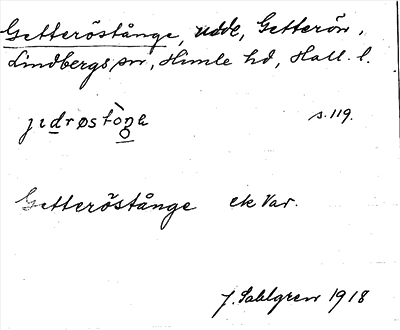 Getteröstånge, udde, Getterön,
Lindbergs sn, Himle hd, Hall. l.
jedrøstòŋa s. 119.
Getteröstånge ek Var.
J. Sahlgren 1918